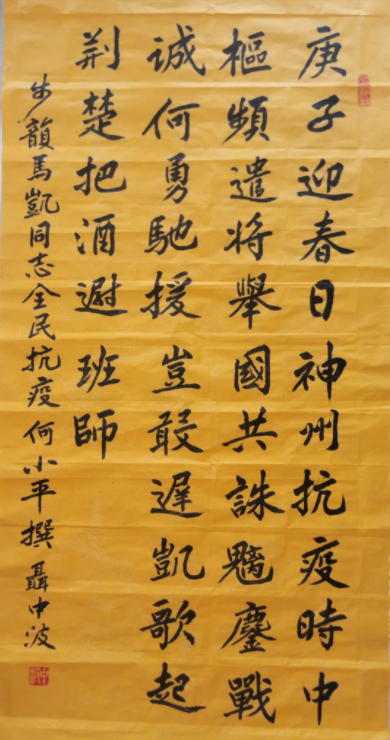 庚子迎春日神州抗疫時中
樞頻遣将舉國共誅魑鏖戰
誠何勇馳援豈敢遲凱歌起
荆楚把酒班師
步韻馬凱同志全民抗疫何小平撰聶中波